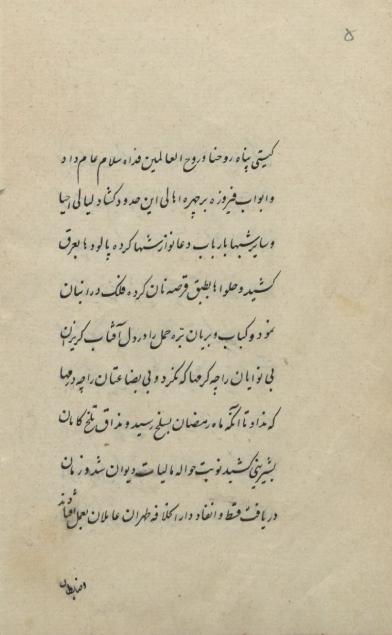 ۵
گیتی پناه روحنا و روح العالمین فداه سلام عام داد
و ابواب فیروزه بر چهره اهالی این حدود گشاد لیالی احیا
و سایر شبها بارباب دعا نوازشها کرده پالودها بعرق
کشید و حلواها بطبق قرصه نان کرده فلک در انبان
نمود و کباب و بریان بره حمل را در دل آفتاب گریزان
بی نوایان را چه کرمها که نکرد و بی بضاعتان را چه درمها
که نداد تا آنکه ماه رمضان بسلخ رسید و مذاق تلخ کامان
بشیرینی کشید نوبت حواله مالیات دیوان شد و زمان
دریافت قسط و انفاد دار الخلافه طهران عاملان بعمل افتادند
و ضابطان